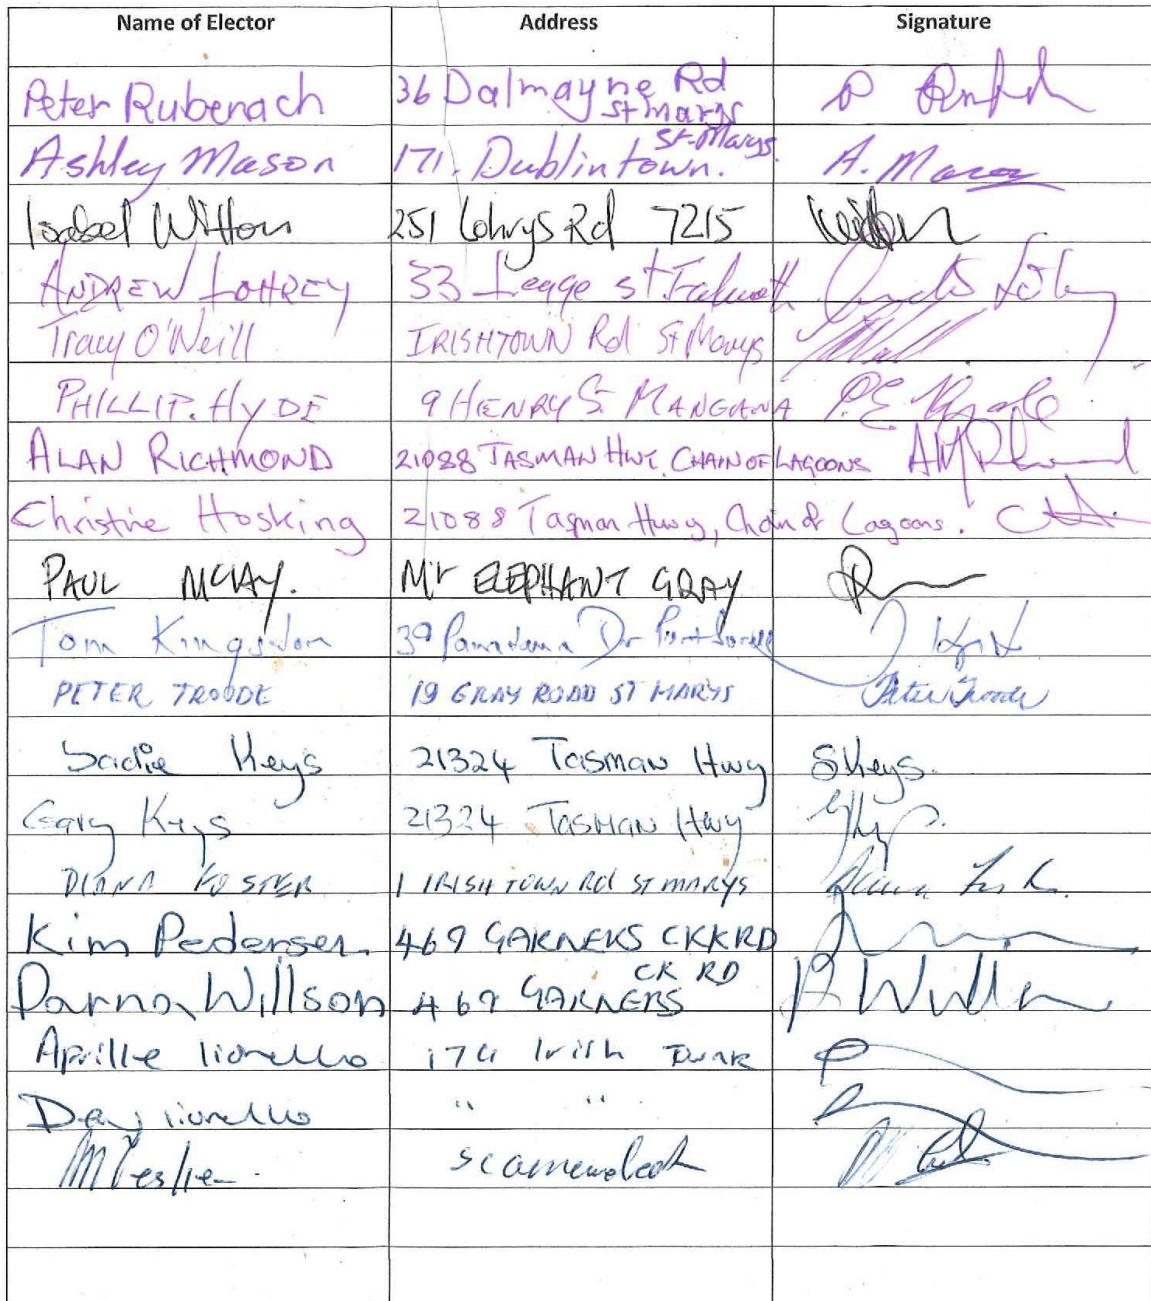 Name of Elector Address Signature
Peter Rubenach 36 Dalmayne Rd St marys P
Ashley Mason 171. Dublintown. St-Marys. A. Mason
Isabel Witton 251 Lohrys Rd 7215 Witton
ANDREW LOHREY 33 Legge st Falmouth
Tracy O'Neill IRISHTOWN Rd St Marys
PHILLIP. HyDE 9 HENRY S. MANGANA P.E. Hyde
ALAN RICHMOND 21088 TASMAN HWY. CHAIN OF LAGOONS
Christine Hosking 21088 Tasman Hwy, Chain of Lagoons.
PAUL MCLAY. MT ELEPHANT GRAY
Tom Kingston 39 Dr Port Sorell
PETER TROODE 19 GRAY ROAD ST MARYS Peter Troode
Sadie Keys 21324 Tasman Hwy SKeys.
Gary Keys 21324 TASMAN Hwy
DIANA FOSTER 1 IRISHTOWN Rd ST MARYS
Kim Pedersen. 469 GARNERS CKRD
Willson 469 GARNERS CK RD
Aprille lionello 174 Irish
lionello " "
M Leslie